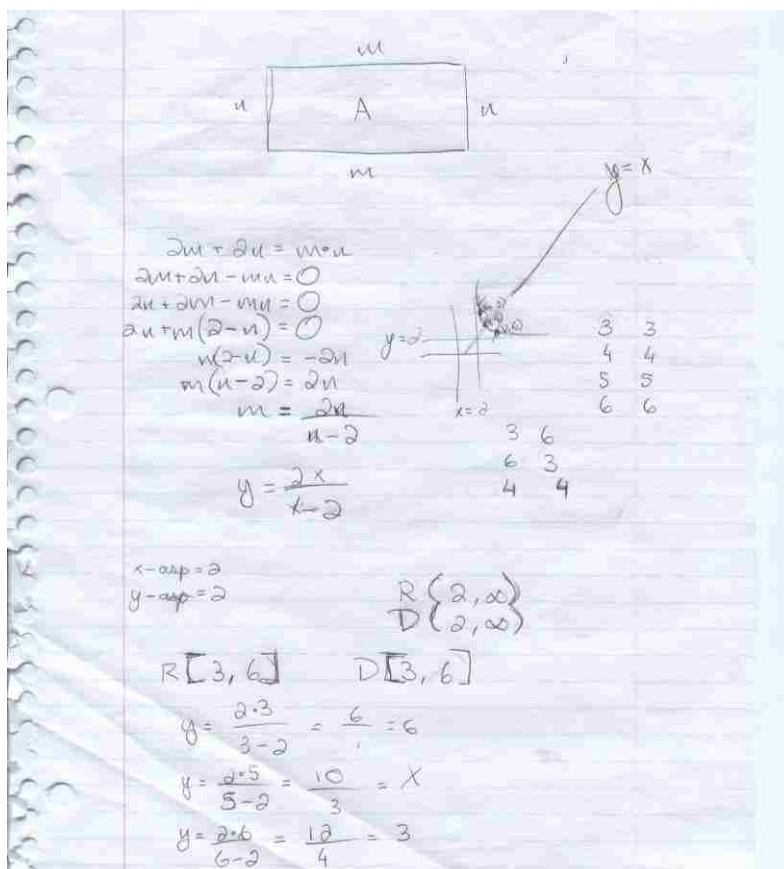 m
n A n
m
y = x
2m + 2n = m·n
2m+2n-mn=0
2n+2m-mn=0
2n+m(2-n)=0
m(2-n) = -2n
m(n-2) = 2n
m = 2n / n-2
y = 2x / x-2
y=2
x=2
3 3
4 4
5 5
6 6
3 6
6 3
4 4
x-asp=2
y-asp=2
R (2,∞)
D (2,∞)
R[3,6] D[3,6]
y = 2·3 / 3-2 = 6 / 1 = 6
y = 2·5 / 5-2 = 10 / 3 = X
y = 2·6 / 6-2 = 12 / 4 = 3